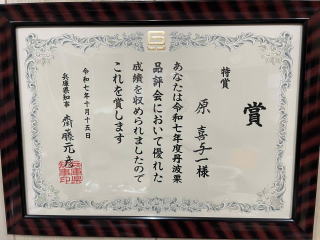 賞
特賞
原 喜与一様
あなたは令和七年度丹波栗
品評会において優れた
成績を収められましたので
これを賞します
令和七年十月十五日
兵庫県知事 齋藤元彦
兵庫県知事印